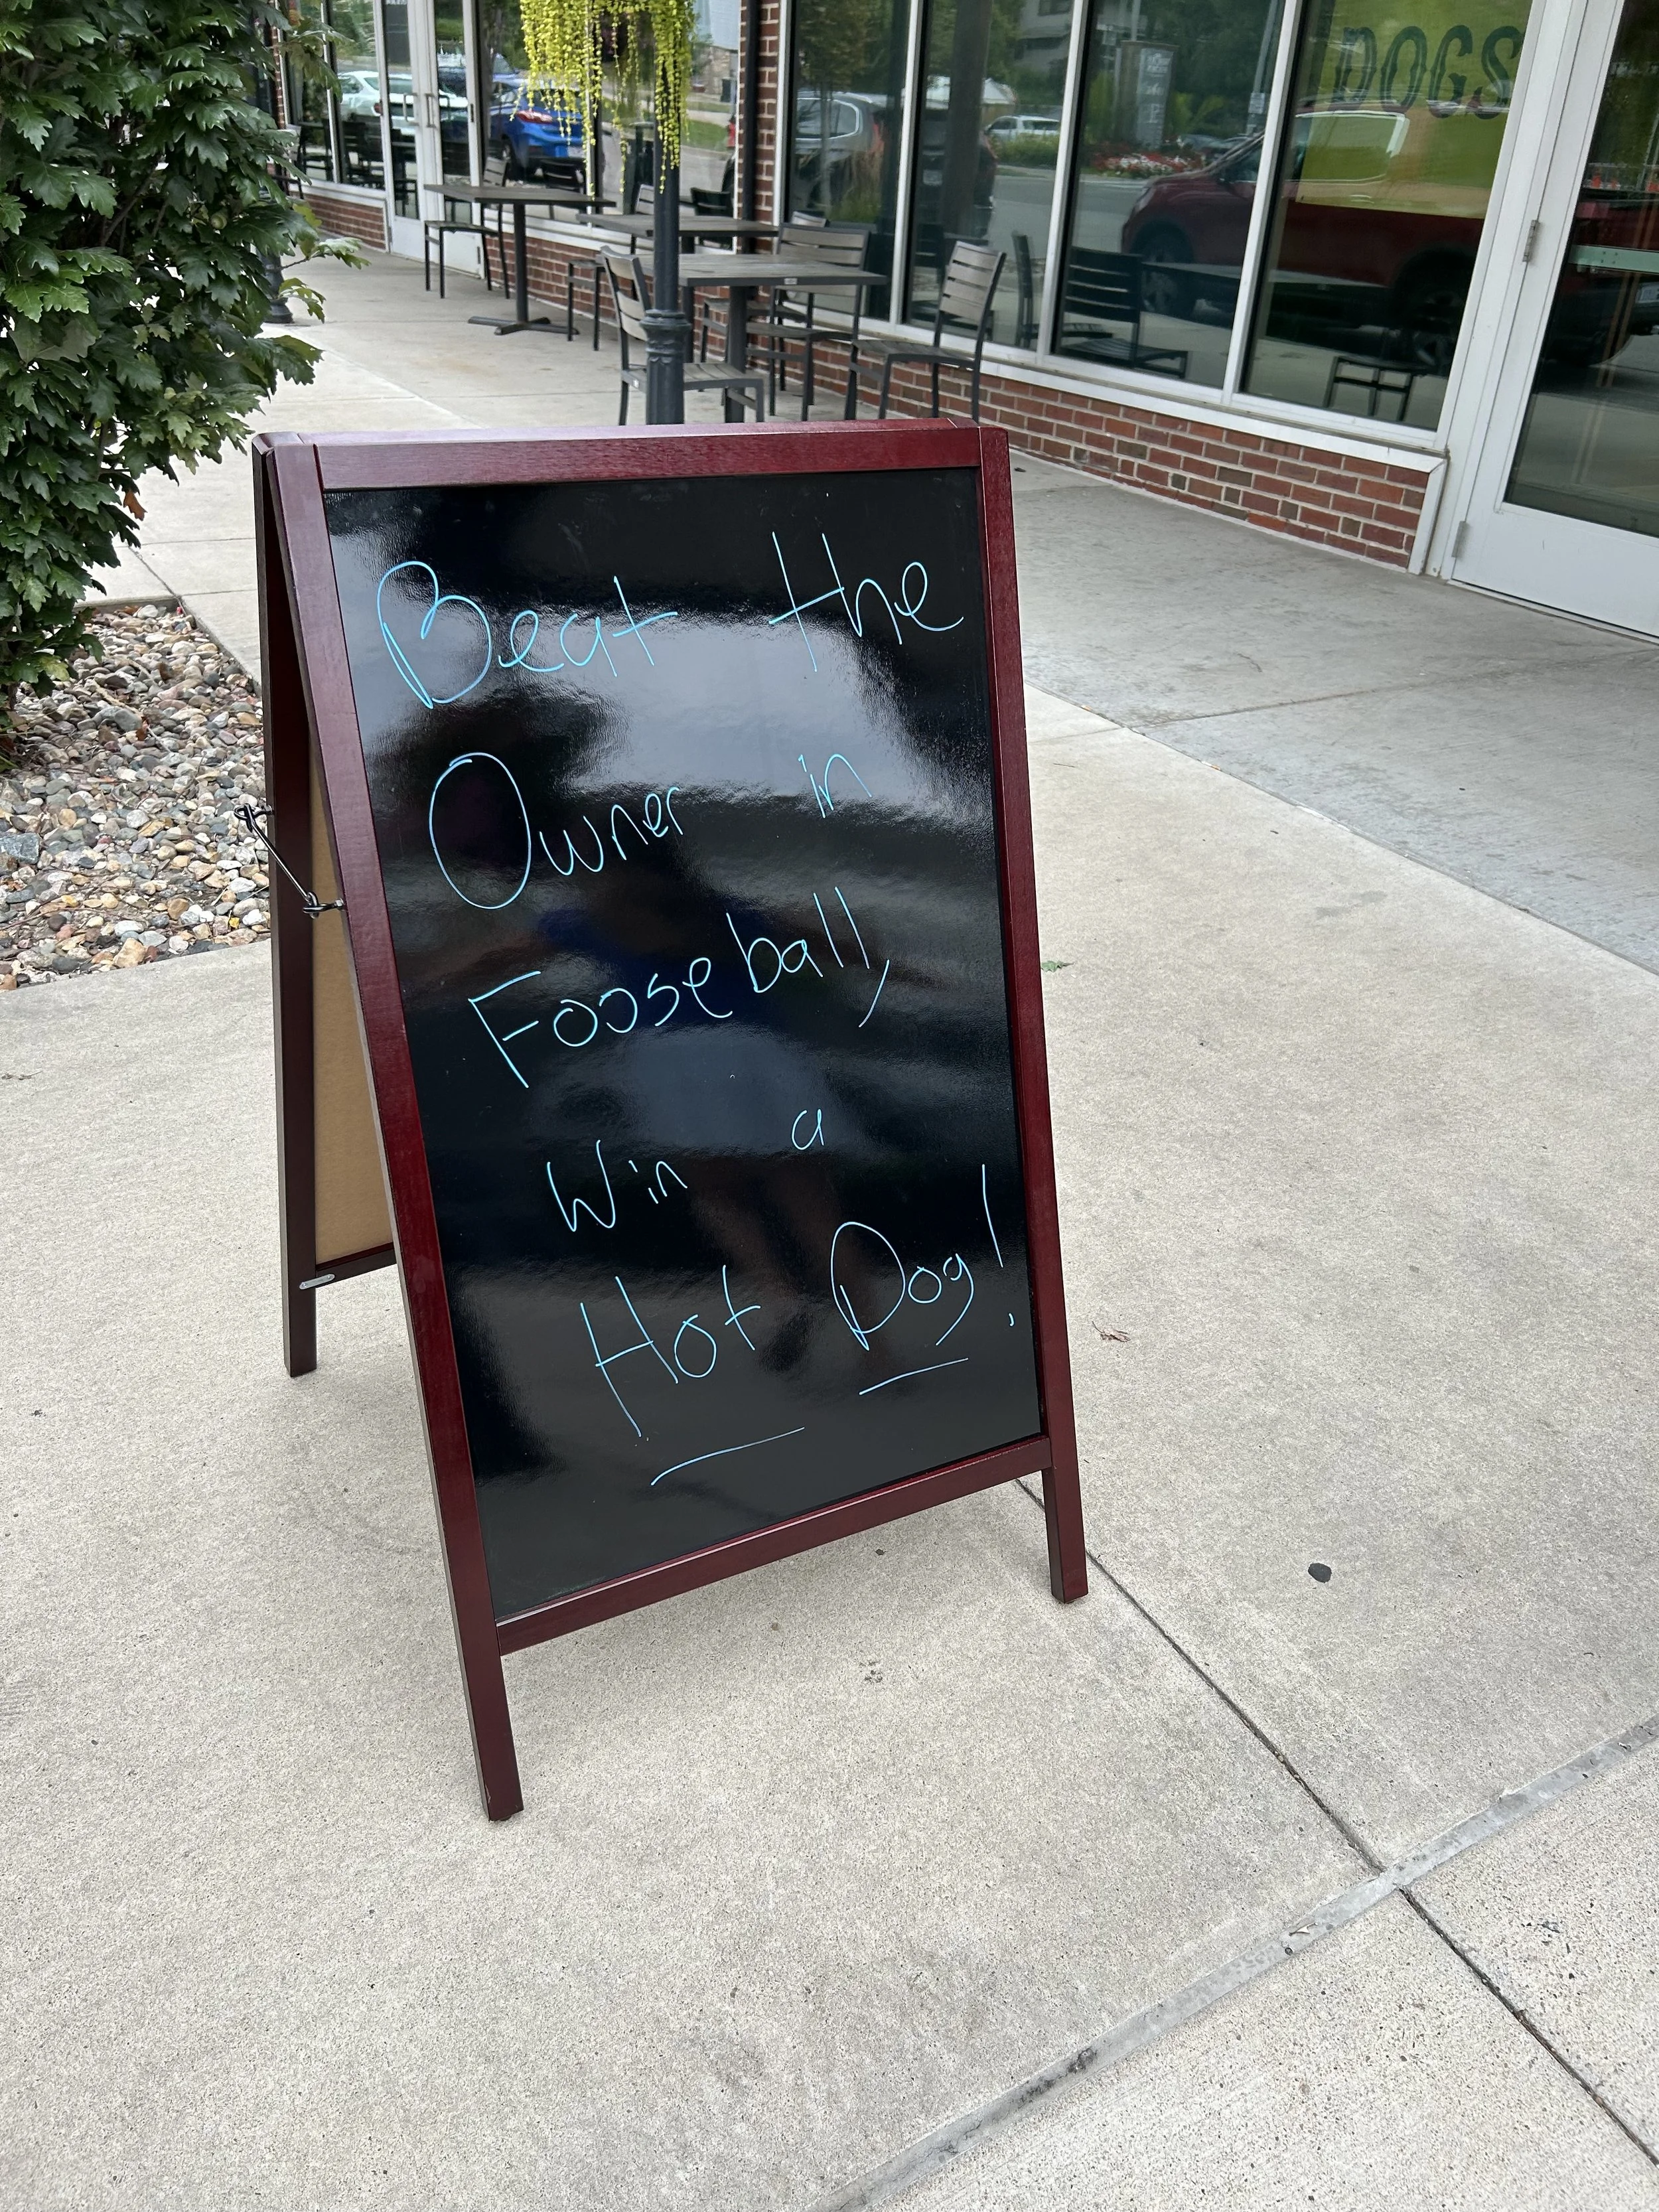 DOGS
Beat the
Owner in
Fooseball,
Win a
Hot Dog!